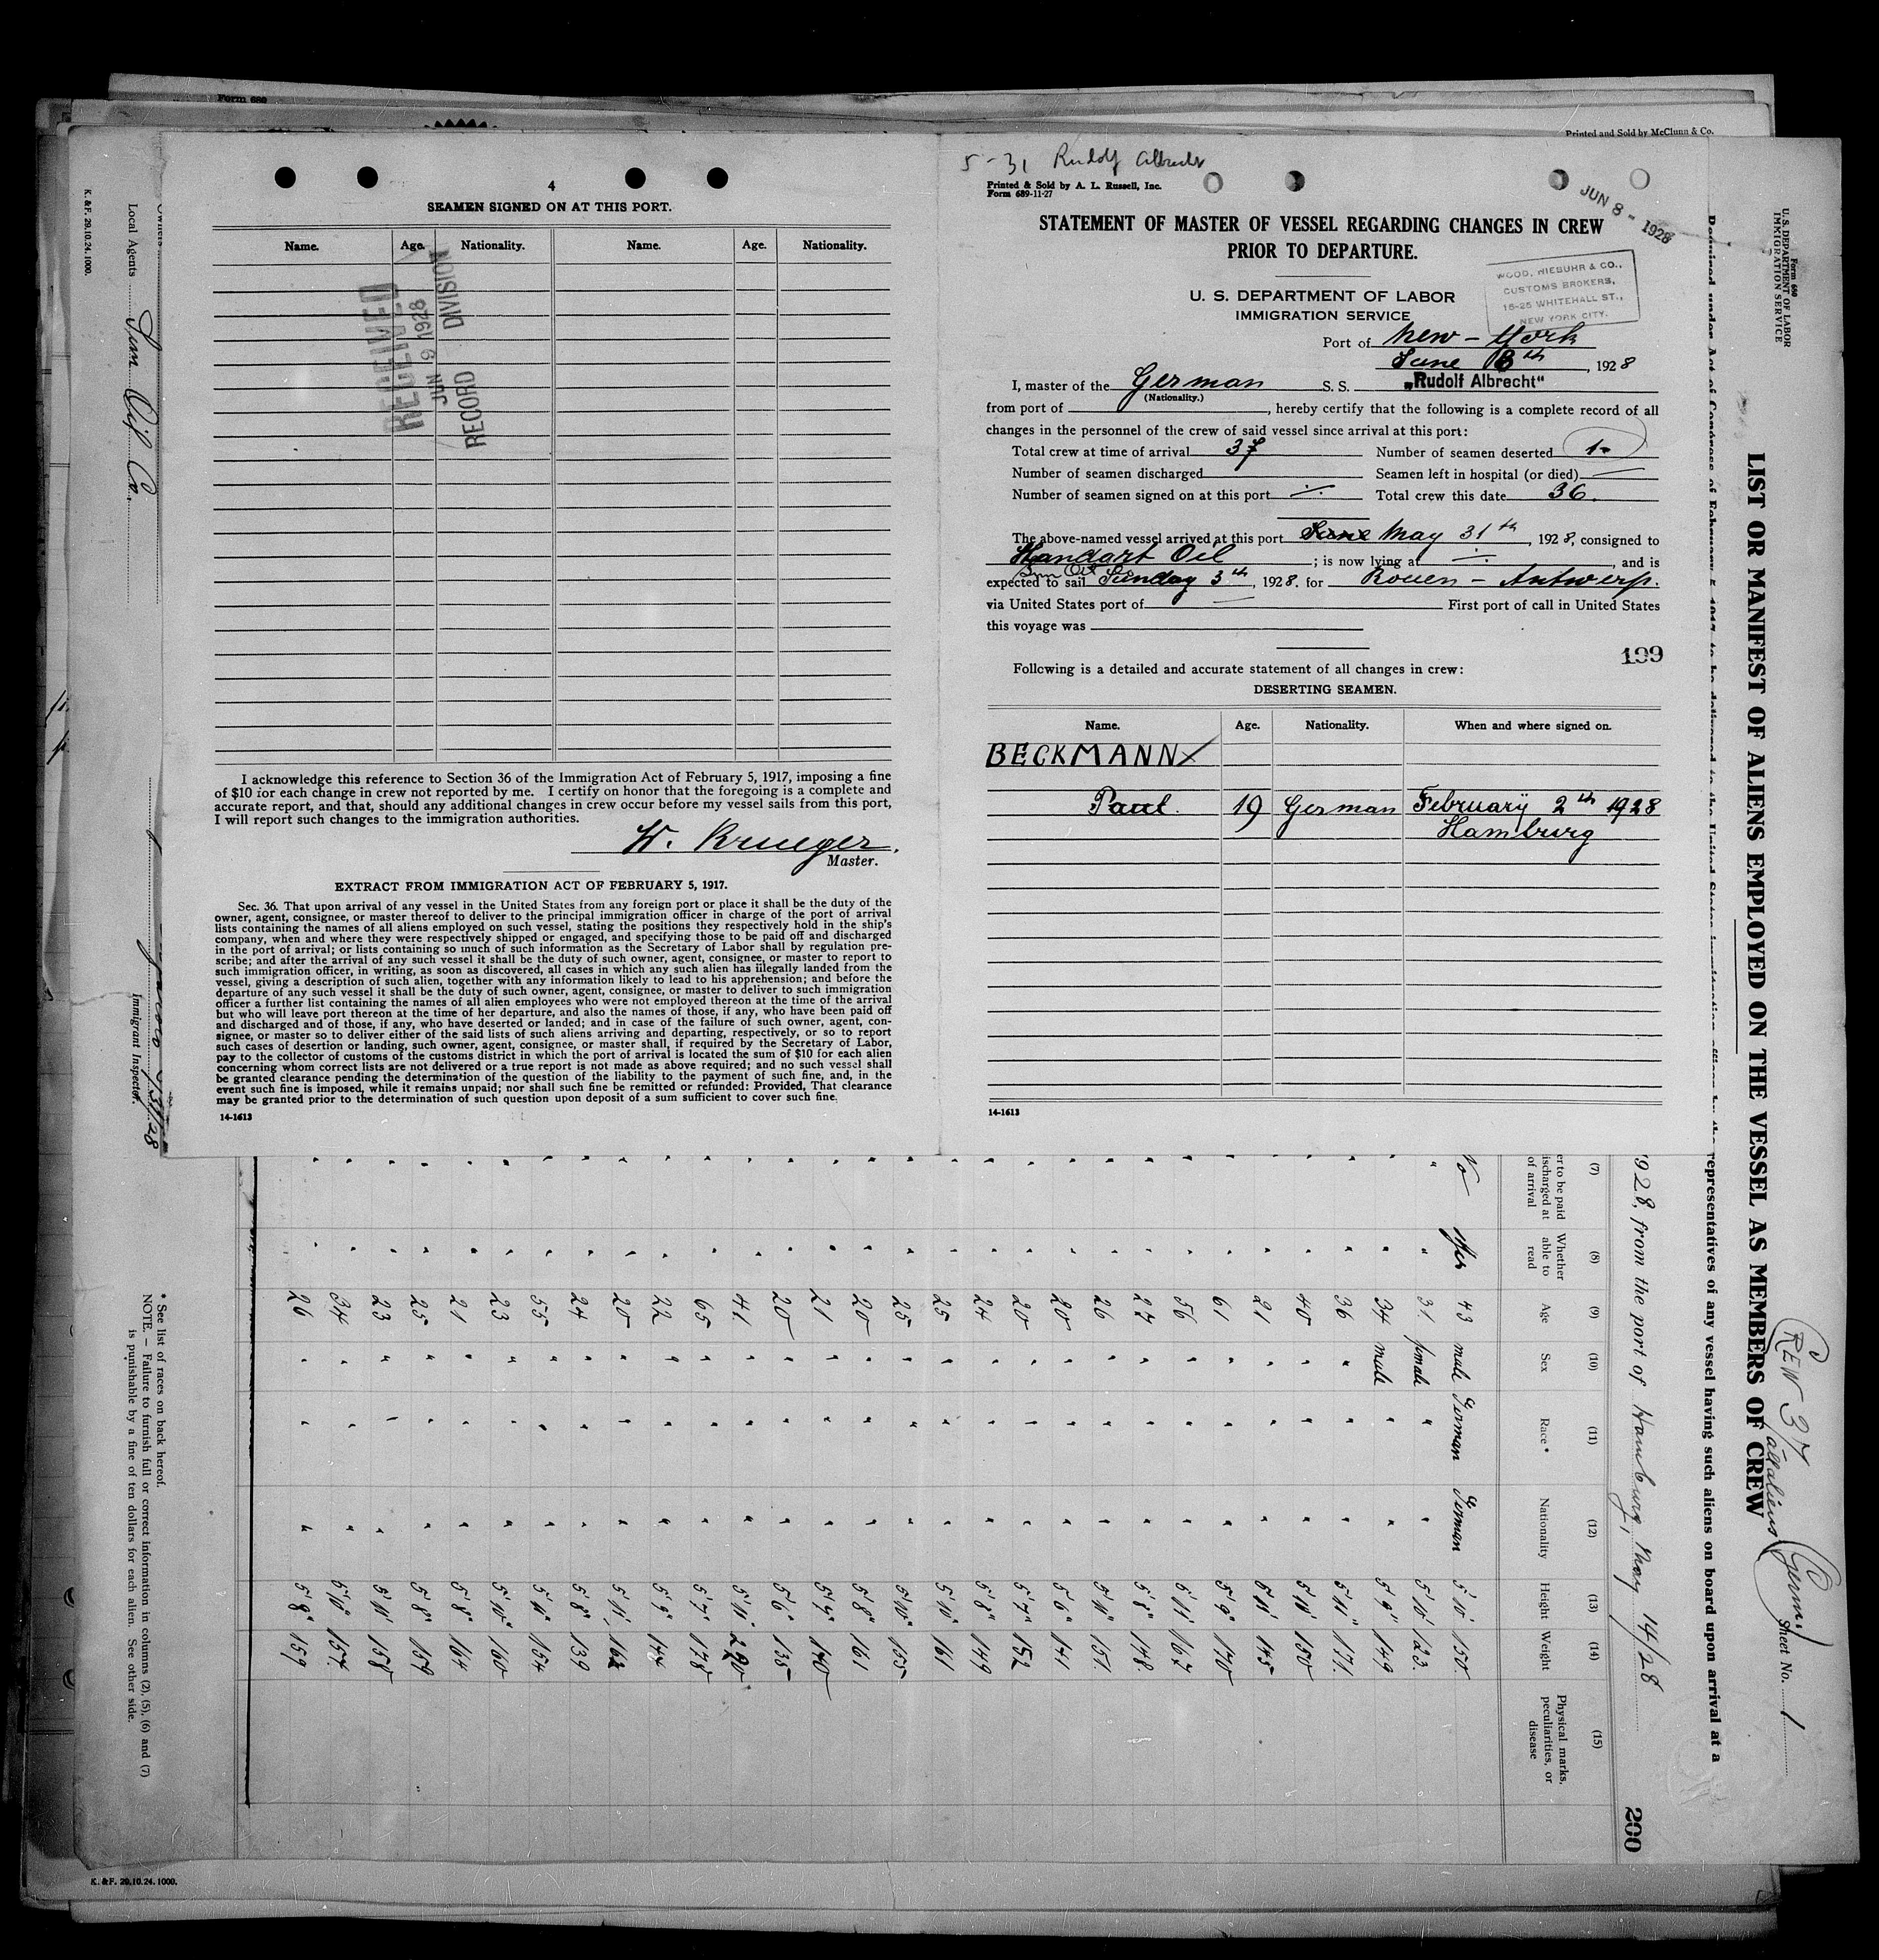 Form 680
Printed and Sold by McClunn & Co.
4
SEAMEN SIGNED ON AT THIS PORT.
Name. Age. Nationality. Name. Age. Nationality.
RECEIVED
JUN 9 1928
RECORD DIVISION
I acknowledge this reference to Section 36 of the Immigration Act of February 5, 1917, imposing a fine
of $10 for each change in crew not reported by me. I certify on honor that the foregoing is a complete and
accurate report, and that, should any additional changes in crew occur before my vessel sails from this port,
I will report such changes to the immigration authorities.
W. Krueger.
Master.
EXTRACT FROM IMMIGRATION ACT OF FEBRUARY 5, 1917.
Sec. 36. That upon arrival of any vessel in the United States from any foreign port or place it shall be the duty of the
owner, agent, consignee, or master thereof to deliver to the principal immigration officer in charge of the port of arrival
lists containing the names of all aliens employed on such vessel, stating the positions they respectively hold in the ship's
company, when and where they were respectively shipped or engaged, and specifying those to be paid off and discharged
in the port of arrival; or lists containing so much of such information as the Secretary of Labor shall by regulation pre-
scribe; and after the arrival of any such vessel it shall be the duty of such owner, agent, consignee, or master to report to
such immigration officer, in writing, as soon as discovered, all cases in which any such alien has illegally landed from the
vessel, giving a description of such alien, together with any information likely to lead to his apprehension; and before the
departure of any such vessel it shall be the duty of such owner, agent, consignee, or master to deliver to such immigration
officer a further list containing the names of all alien employees who were not employed thereon at the time of the arrival
but who will leave port thereon at the time of her departure, and also the names of those, if any, who have been paid off
and discharged and of those, if any, who have deserted or landed; and in case of the failure of such owner, agent, con-
signee, or master so to deliver either of the said lists of such aliens arriving and departing, respectively, or so to report
such cases of desertion or landing, such owner, agent, consignee, or master shall, if required by the Secretary of Labor,
pay to the collector of customs of the customs district in which the port of arrival is located the sum of $10 for each alien
concerning whom correct lists are not delivered or a true report is not made as above required; and no such vessel shall
be granted clearance pending the determination of the question of the liability to the payment of such fine, and, in the
event such fine is imposed, while it remains unpaid; nor shall such fine be remitted or refunded: Provided, That clearance
may be granted prior to the determination of such question upon deposit of a sum sufficient to cover such fine.
14-1613
5-31 Rudolf Albrecht
Printed & Sold by A. L. Russell, Inc.
Form 689-11-27
JUN 8 - 1928
STATEMENT OF MASTER OF VESSEL REGARDING CHANGES IN CREW
PRIOR TO DEPARTURE.
WOOD, NIEBUHR & CO.,
CUSTOMS BROKERS,
16-25 WHITEHALL ST.,
NEW YORK CITY.
U. S. DEPARTMENT OF LABOR
IMMIGRATION SERVICE
Port of New-York
June 8th, 1928
I, master of the German S. S. „Rudolf Albrecht“
(Nationality.)
from port of , hereby certify that the following is a complete record of all
changes in the personnel of the crew of said vessel since arrival at this port:
Total crew at time of arrival 37 Number of seamen deserted 1.
Number of seamen discharged Seamen left in hospital (or died) —
Number of seamen signed on at this port Total crew this date 36.
The above-named vessel arrived at this port June May 31th, 1928, consigned to
Standart Oil ; is now lying at , and is
Sun Oil Co
expected to sail Sunday 3th, 1928. for Rouen - Antwerp.
via United States port of — First port of call in United States
this voyage was
199
Following is a detailed and accurate statement of all changes in crew:
DESERTING SEAMEN.
Name. Age. Nationality. When and where signed on.
BECKMANN X
Paul. 19 German February 2th 1928
Hamburg
14-1613
Form 680
U. S. DEPARTMENT OF LABOR
IMMIGRATION SERVICE
LIST OR MANIFEST OF ALIENS EMPLOYED ON THE VESSEL AS MEMBERS OF CREW
CREW 37
all aliens
Germ.
Sheet No. 1
representatives of any vessel having such aliens on board upon arrival at a
1928, from the port of Hamburg, May 14/28
200
(7) (8) (9) (10) (11) (12) (13) (14) (15)
er to be paid
ischarged at
of arrival
Whether
able to
read
Age
Sex
Race*
Nationality
Height
Weight
Physical marks,
peculiarities, or
disease
No yes 43 male German German 5 10" 150.
" " 31 female " " 5 10" 123.
" 34 male " " 5 9" 149
" 36 " " " 5 11" 171.
" 40 " " " 5 10" 150
" 21 " " " 5 11" 145
" 61 " " " 5 9" 170
" 56 " " " 5 11" 167
" 27 " " " 5 8" 148
" 26 " " " 5 11" 151.
" 20 " " " 5 6" 141
" 20 " " " 5 7" 152
" 24 " " " 5 8" 149
" 25 " " " 5 10" 161
" 25 " " " 5 10" 155
" 20 " " " 5 8" 161
" 21 " " " 5 9" 170
" 20 " " " 5 6" 135
" 41 " " " 5 11" 200
" 65 " " " 5 7" 178
" 22 " " " 5 9" 144
" 20 " " " 5 11" 162
" 24 " " " 5 8" 139
" 55 " " " 5 11" 154
" 23 " " " 5 10" 160
" 21 " " " 5 8" 164
" 25 " " " 5 8" 159
" 23 " " " 5 11" 158
" 34 " " " 5 10" 154
" 26 " " " 5 8" 159
* See list of races on back hereof.
NOTE. — Failure to furnish full or correct information in columns (2), (5), (6) and (7)
is punishable by a fine of ten dollars for each alien. See other side.
Immigrant Inspector.
5/31/28
Owners
Local Agents Sun Oil Co.
K. & F. 29.10.24.1000.
K. & F. 29.10.24.1000.